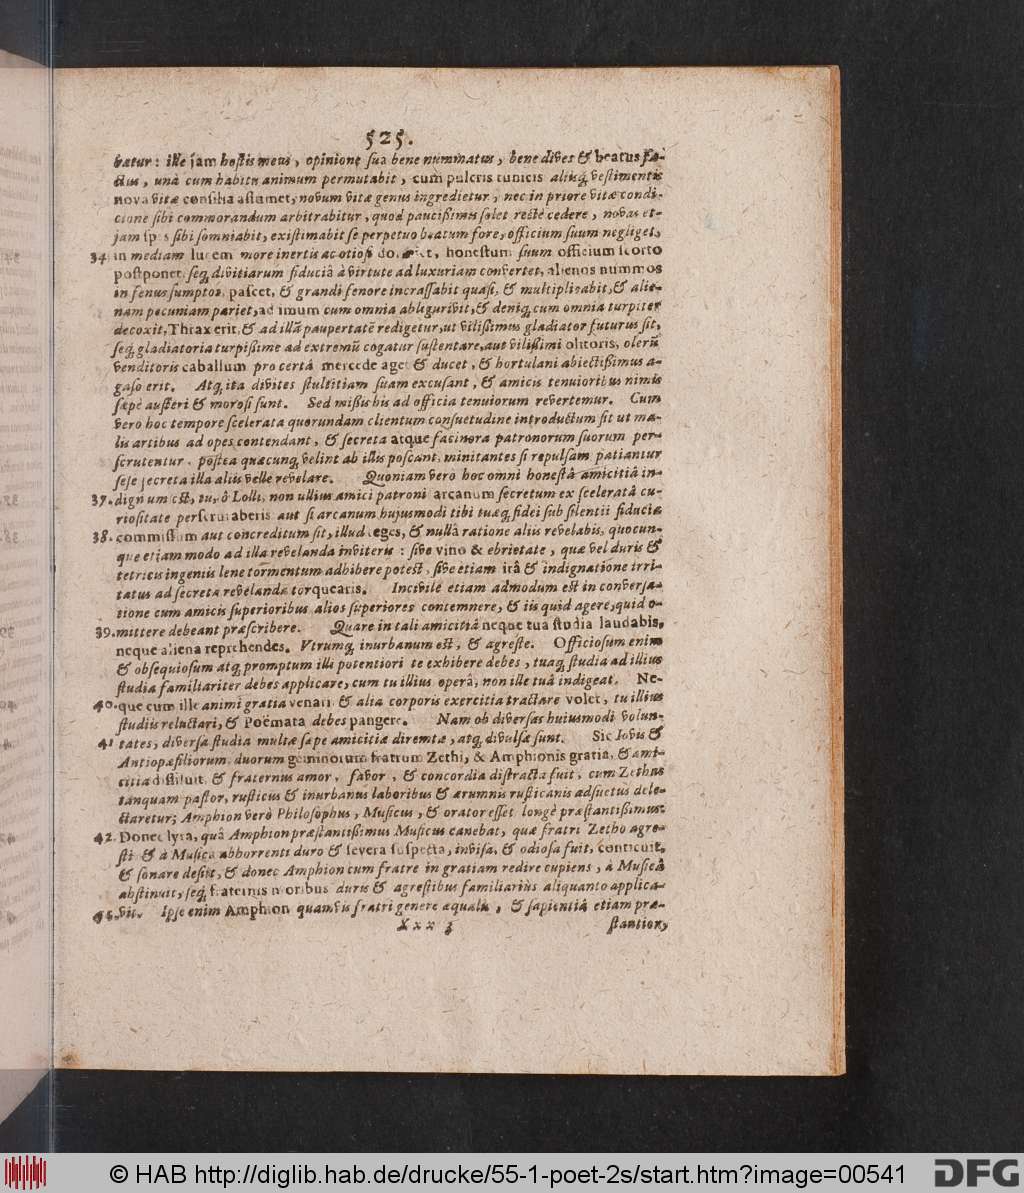 525.
batur: ille jam hostis meus, opinione sua bene nummatus, bene dives & beatus fa-
ctus, unà cum habitu animum permutabit, cum pulcris tunicis aliisq́; vestimentis
nova vitæ consilia assumet, novum vitæ genus ingredietur, nec in priore vitæ condi-
cione sibi commorandum arbitrabitur, quod paucißimis solet rectè cedere, novas et-
jam spes sibi somniabit, existimabit se perpetuo beatum fore, officium suum negliget,
34. in mediam lucem more inertis ac otiosi dormiet, honestum suum officium scorto
postponet, seq́; divitiarum fiduciâ à virtute ad luxuriam convertet, alienos nummos
in fenus sumptos, pascet, & grandi fenore incrassabit quasi, & multiplicabit, & alie-
nam pecuniam pariet, ad imum cum omnia abligurivit, & deniq́; cum omnia turpiter
decoxit, Thrax erit, & ad illã paupertatẽ redigetur, ut vilißimus gladiator futurus sit,
seq́; gladiatoria turpißime ad extremũ cogatur sustentare, aut vilißimi olitoris, olerũ
venditoris caballum pro certâ mercede aget & ducet, & hortulani abiectißimus a-
gaso erit. Atq́; ita divites stultitiam suam excusant, & amicis tenuioribus nimis
sæpè austeri & morosi sunt. Sed mißis his ad officia tenuiorum revertemur. Cum
vero hoc tempore scelerata quorundam clientum consuetudine introductum sit ut ma-
lis artibus ad opes contendant, & secreta atque facinora patronorum suorum per-
scrutentur, postea quæcunq́; velint ab illis poscant, minitantes si repulsam patiantur
sese secreta illa aliis velle revelare. Quoniam verò hoc omni honestâ amicitiâ in-
37. dignum est, tu, ô Lolli, non ullius amici patroni arcanum secretum ex sceleratâ cu-
riositate perscrutaberis aut si arcanum hujusmodi tibi tuæq́; fidei sub silentii fiducia
38. commissum aut concreditum sit, illud teges, & nullâ ratione aliis revelabis, quocun-
que etiam modo ad illa revelanda inviteris: sive vino & ebrietate, quæ vel duris &
tetricis ingeniis lene tormentum adhibere potest, sive etiam irâ & indignatione irri-
tatus ad secreta revelanda torquearis. Incivile etiam admodum est in conversa-
tione cum amicis superioribus alios superiores contemnere, & iis quid agere, quid o-
39. mittere debeant præscribere. Quare in tali amicitiâ neque tua studia laudabis,
neque aliena reprehendes. Utrumq́; inurbanum est, & agreste. Officiosum enim
& obsequiosum atq́; promptum illi potentiori te exhibere debes, tuaq́; studia ad illius
studia familiariter debes applicare, cum tu illius operâ, non ille tuâ indigeat. Ne-
40. que cum ille animi gratia venari & alia corporis exercitia tractare volet, tu illius
studiis reluctari, & Poëmata debes pangere. Nam ob diversas huiusmodi volun-
41 tates, diversa studia multæ sæpe amicitiæ diremtæ, atq́; divulsæ sunt. Sic Iovis &
Antiopæ filiorum, duorum geminorum fratrum Zethi, & Amphionis gratia, & ami-
citia dissiluit, & fraternus amor, favor, & concordia distracta fuit, cum Zethus
tanquam pastor, rusticus & inurbanus laboribus & ærumnis rusticanis adsuetus dele-
ctaretur; Amphion verò Philosophus, Musicus, & orator esset longè præstantißimus.
42. Donec lyra, quâ Amphion præstantißimus Musicus canebat, quæ fratri Zetho agre-
sti & à Musica abhorrenti duro & severa suspecta, invisa, & odiosa fuit, conticuit,
& sonare desiit, & donec Amphion cum fratre in gratiam redire cupiens, à Musicâ
abstinuit, seq́; fraternis moribus duris & agrestibus familiariùs aliquanto applica-
vit. Ipse enim Amphion quamvis fratri genere æqualis, & sapientiâ etiam præ-
Xxx 3 stantior,
© HAB http://diglib.hab.de/drucke/55-1-poet-2s/start.htm?image=00541 DFG